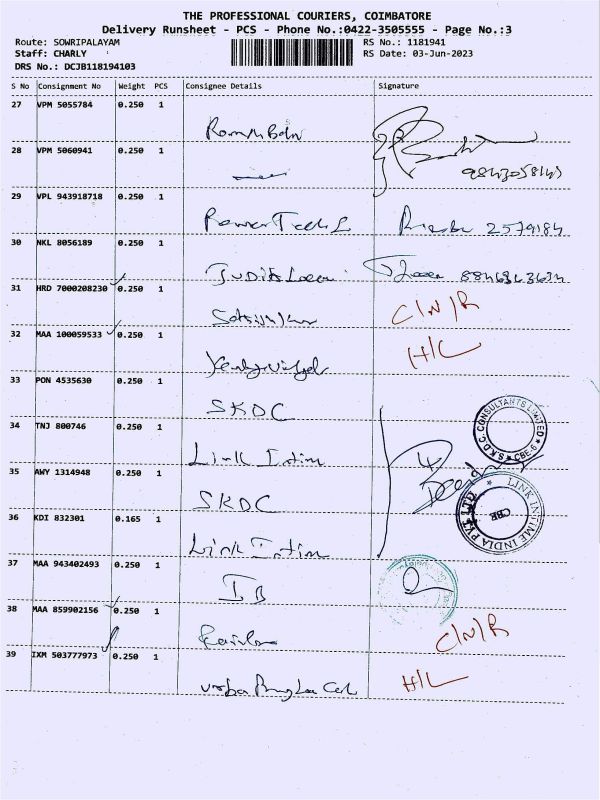 THE PROFESSIONAL COURIERS, COIMBATORE
Delivery Runsheet - PCS - Phone No.:0422-3505555 - Page No.:3
Route: SOWRIPALAYAM RS No.: 1181941
Staff: CHARLY RS Date: 03-Jun-2023
DRS No.: DCJB118194103
S No Consignment No Weight PCS Consignee Details Signature
27 VPM 5055784 0.250 1
28 VPM 5060941 0.250 1
29 VPL 943918718 0.250 1
2579184
30 NKL 8056189 0.250 1
31 HRD 7000208230 0.250 1
C/N/R
32 MAA 100059533 0.250 1
H/L
33 PON 4535630 0.250 1
SKDC
S.K.D.C. CONSULTANTS LIMITED ★ CBE-6 ★
34 TNJ 800746 0.250 1
Link Intim
35 AWY 1314948 0.250 1
SKDC
LINK INTIME INDIA PVT LTD ★ CBE
36 KDI 832301 0.165 1
Link Intim
37 MAA 943402493 0.250 1
IB
38 MAA 859902156 0.250 1
C/N/R
39 IXM 503777973 0.250 1
H/L